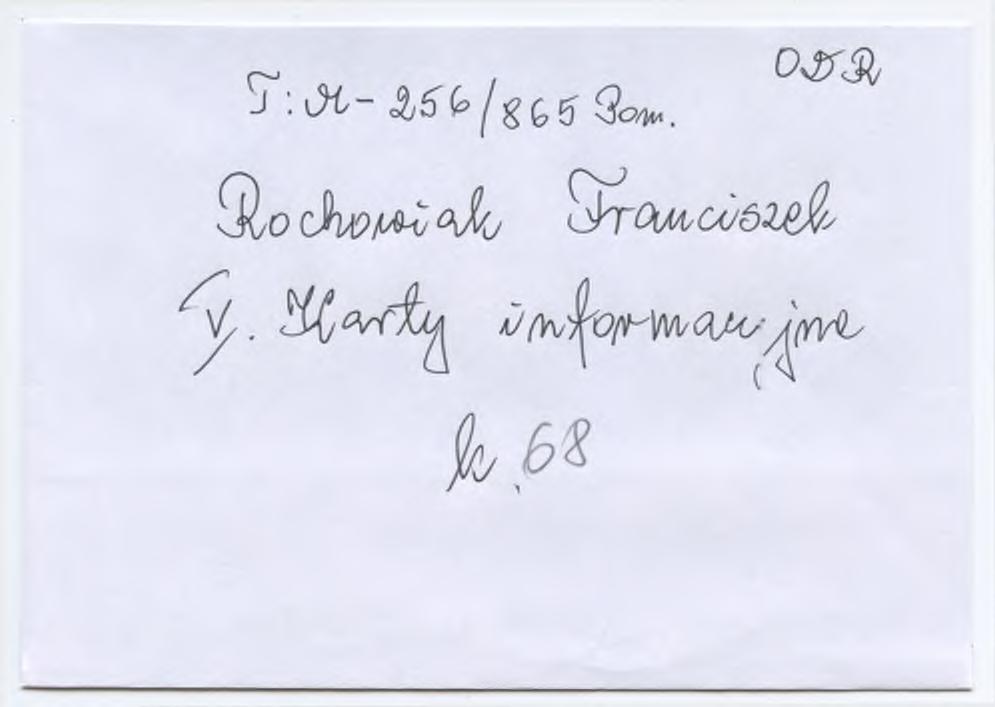 ODR
T: M - 256/865 Pom.
Rochowiak Franciszek
V. Karty informacyjne
k. 68